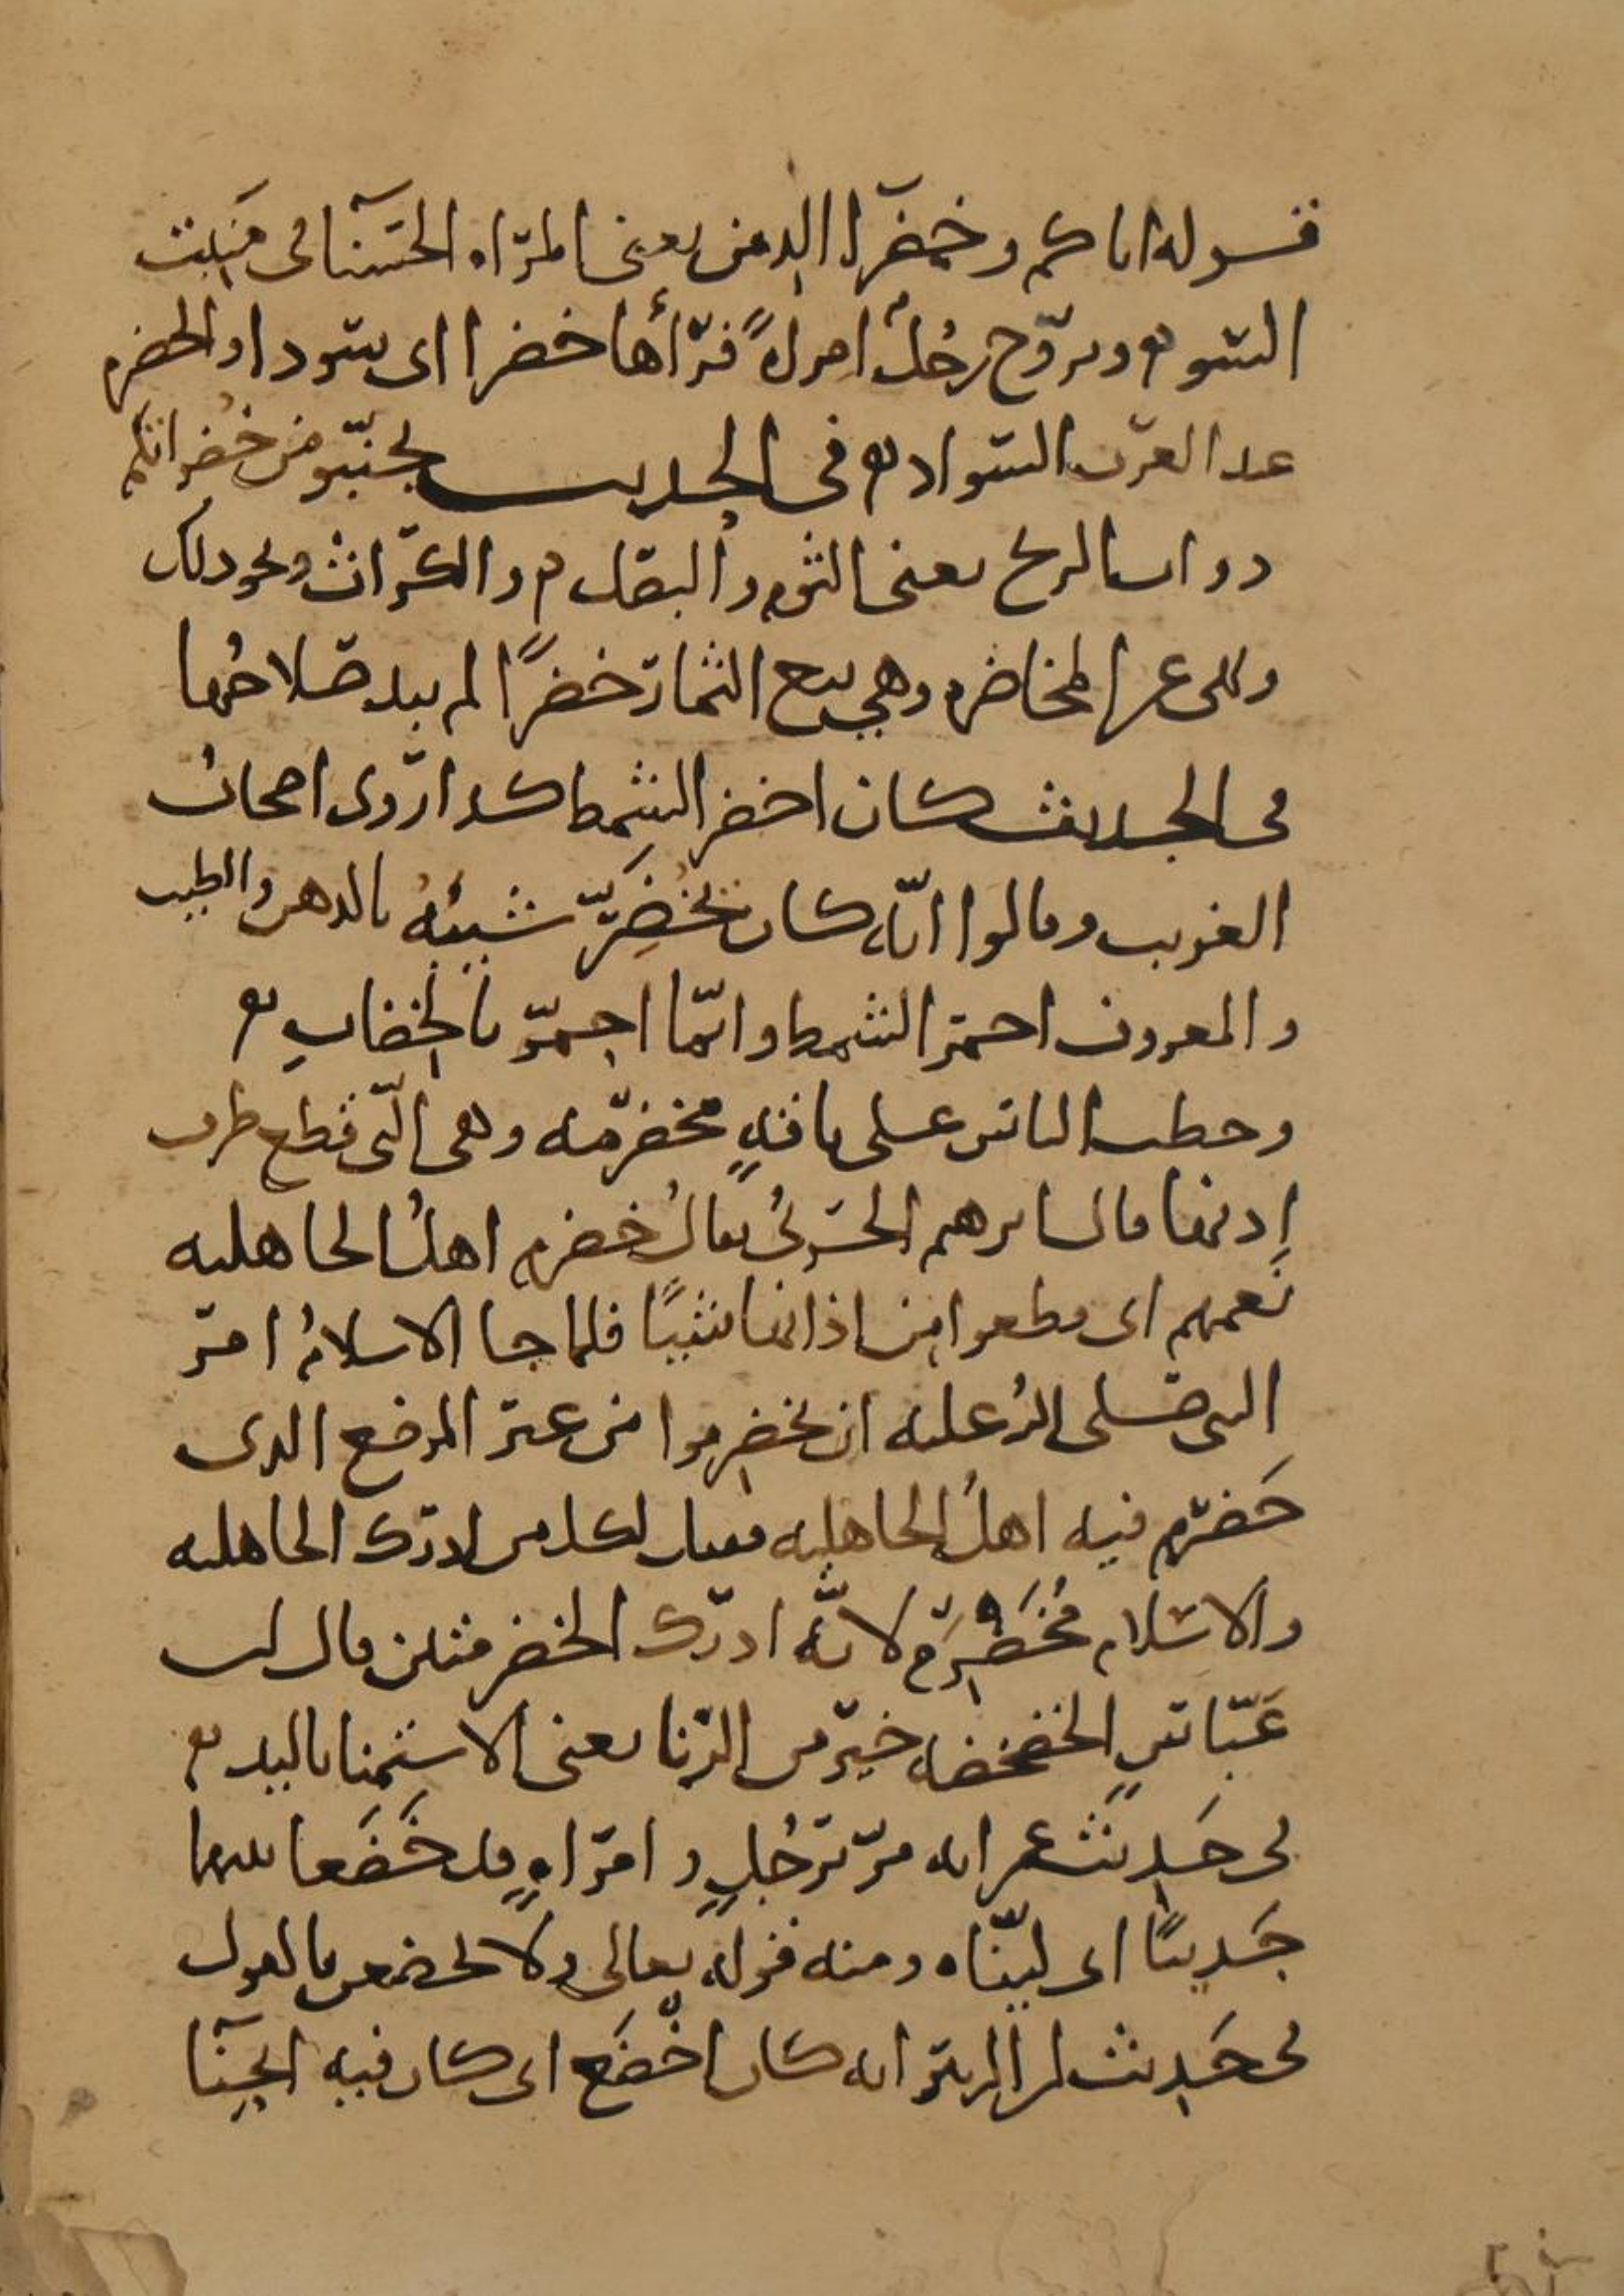 قوله اياكم وخضرا الدمن يعنى المرأه الحسنا فى منبت
السوء وتزوج رجل امراةً فرأها خضرا اى سودا والخضره
عند العرب السواد فى الحديث تجنبوا من خضرائكم
ذوات الريح يعنى الثوم والبصل والكراث ونحو ذلك
ونهى عن المخاضره وهي بيع الثمار خضرًا لم يبد صلاحُها
فى الحديث كان اخضر الشمط كذا روى اصحاب
الغريب وقالوا انّه كان يخضرّ شيبُه بالدهن والطيب
والمعروف احمر الشمط وانّما احمرّ بالخضابِ
وخطب الناس على ناقهٍ مخضرمه وهى الّتى قطع طرف
اذنها قال ابرهم الحربىُ يقالُ خضرم اهلُ الجاهليه
نَعمهم اى قطعوا من اذانها شيئًا فلما جا الاسلامُ امر
النبى صلى الله عليه ان يخضرموا من غير الموضع الذى
خَضرم فيه اهلُ الجاهليه فقيل لكل من ادرك الجاهليه
والاسلام مُخَضْرَم لانّه ادرك الخضرمتين قال ابن
عَبّاسٍ الخضخضه خير من الزنا يعنى الاستمنا باليد
فى حَديث عمر انه مرّ برَجُلٍ وامراهٍ قد خَضَعا بينهما
حَديثًا اى ليّناه ومنه قوله تعالى ولا تخضعن بالقول
فى حَديث ابن الزبير انه كان اخْضَع اى كان فيه انحنآ